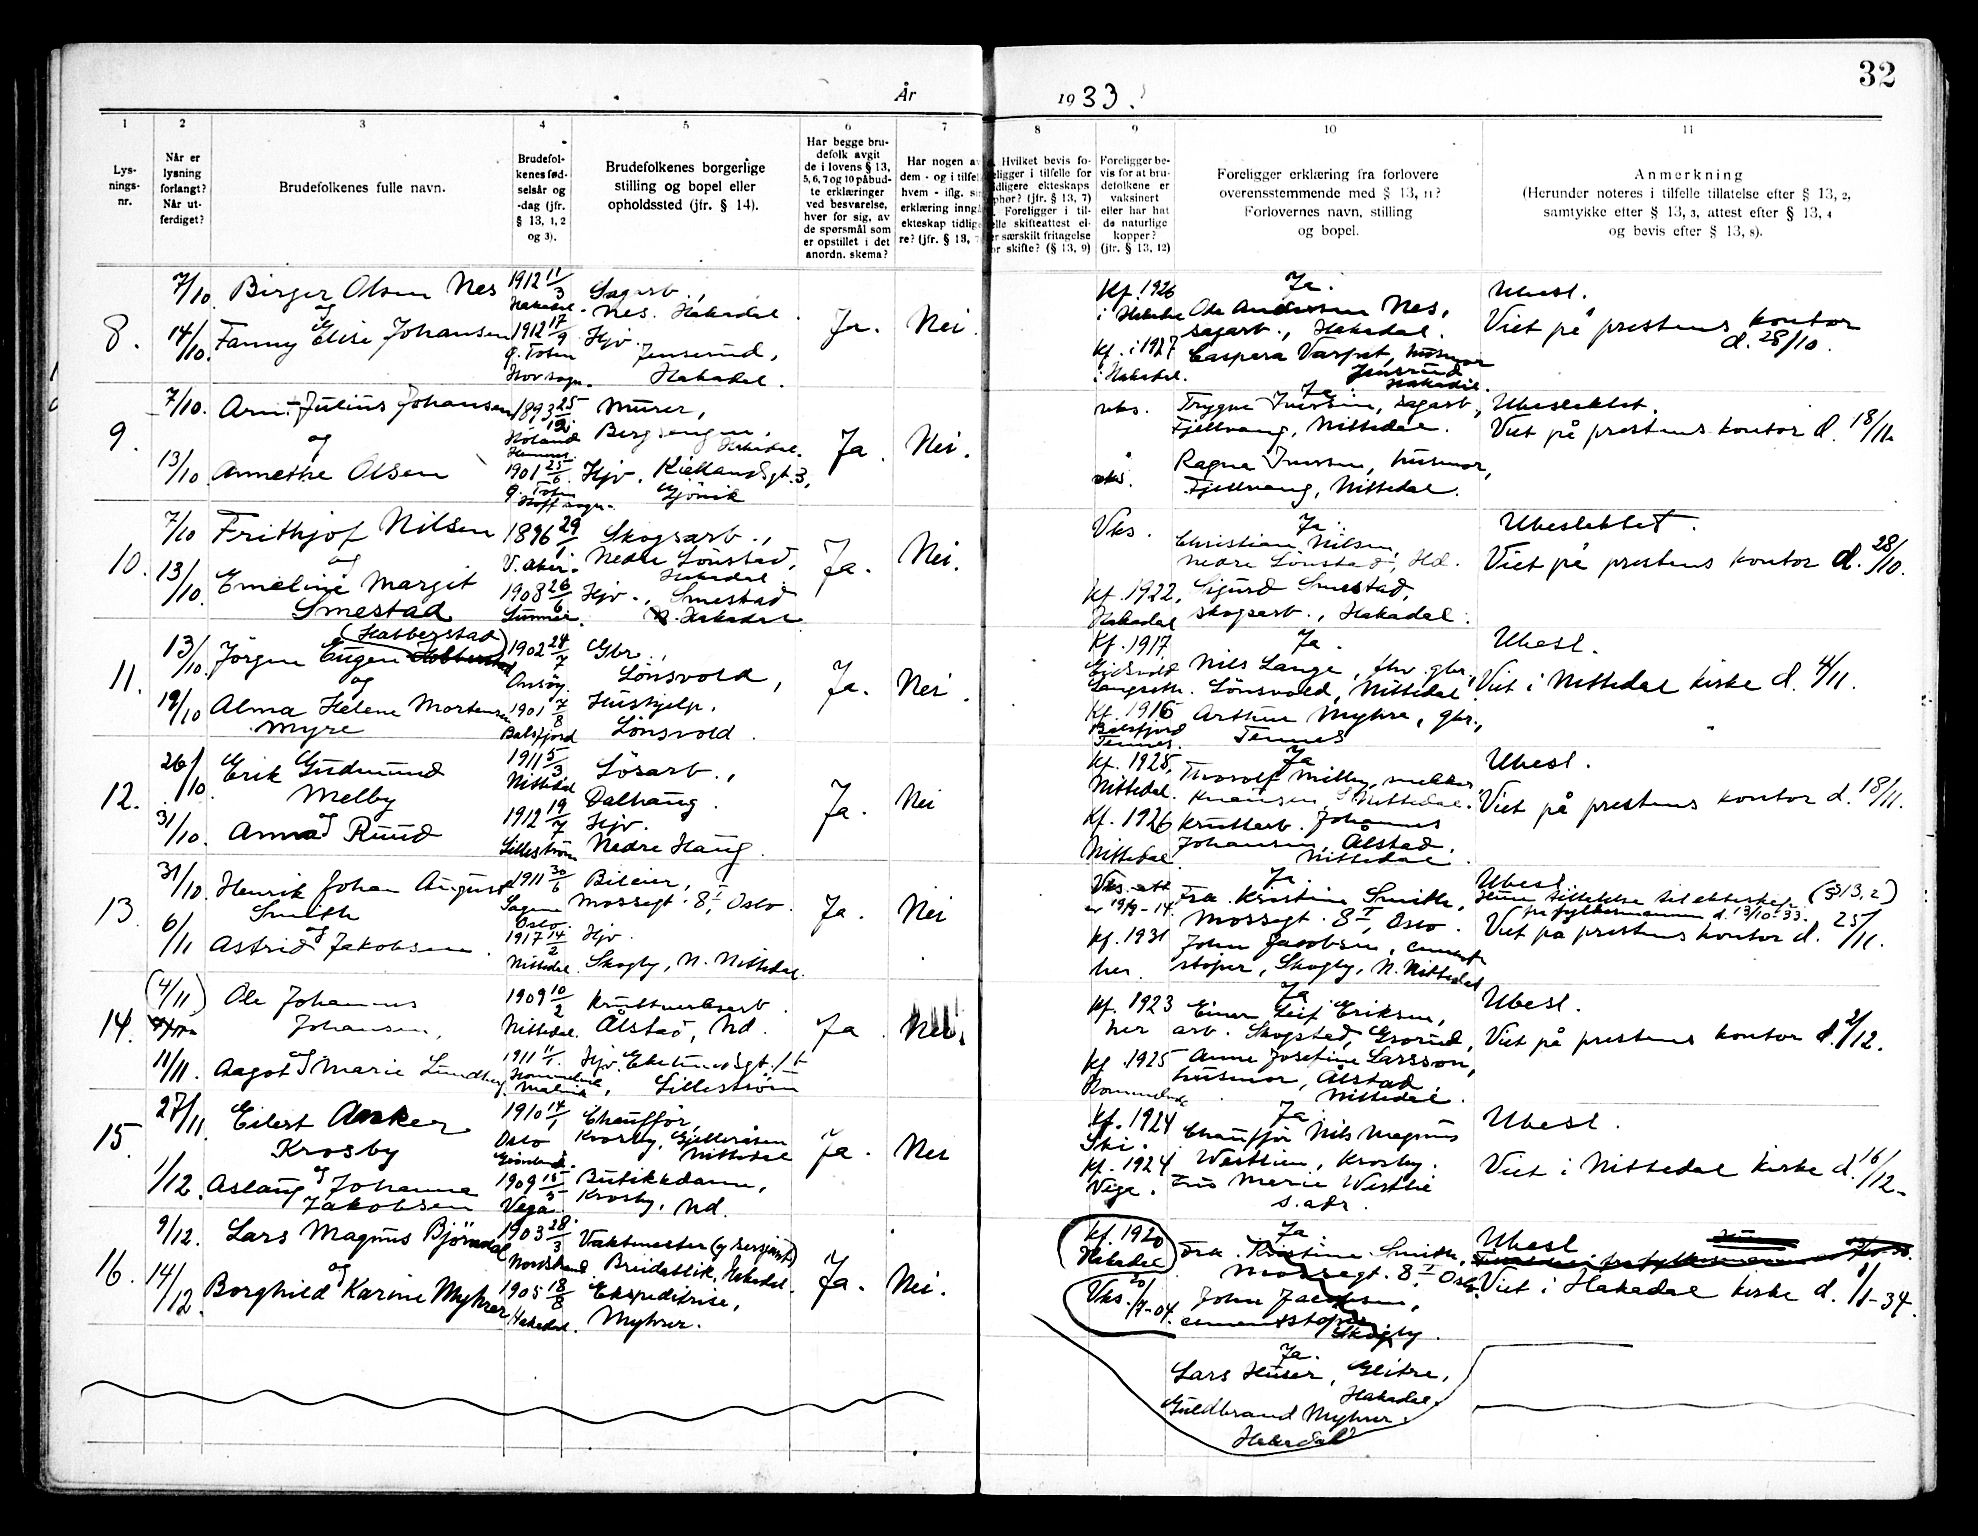 32
År
1933.
1
2
3
4
5
6
7
8
9
10
11
Lys-
nings-
nr.
Når er
lysning
forlangt?
Når ut-
ferdiget?
Brudefolkenes fulle navn.
Brudefol-
kenes fød-
selsår og
-dag (jfr.
§ 13, 1, 2
og 3).
Brudefolkenes borgerlige
stilling og bopel eller
opholdssted (jfr. § 14).
Har begge bru-
defolk avgit
de i lovens § 13,
5, 6, 7 og 10 påbud-
te erklæringer
ved besvarelse,
hver for sig, av
de spørsmål som
er opstillet i det
anordn. skema?
Har nogen av
dem - og i tilfel
hvem - iflg. si
erklæring inngå
ekteskap tidlig
re? (jfr. § 13, 7
Hvilket bevis fo-
religger i tilfelle for
tidligere ekteskaps
ophør? (jfr. § 13, 7)
Foreligger i til-
felle skifteattest el-
er særskilt fritagelse
for skifte? (§ 13, 9)
Foreligger be-
vis for at bru-
defolkene er
vaksinert
eller har hat
de naturlige
kopper?
(jfr. § 13, 12)
Foreligger erklæring fra forlovere
overensstemmende med § 13, 11?
Forlovernes navn, stilling
og bopel.
Anmerkning
(Herunder noteres i tilfelle tillatelse efter § 13, 2,
samtykke efter § 13, 3, attest efter § 13, 4
og bevis efter § 13, 8).
8.
7/10.
14/10.
Birger Olsen Nes
og
Fanny Elise Johansen
1912 11/3
Hakadal.
1912 17/9
Ø. Toten
Hov sogn.
Sagarb.,
Nes. Hakadal.
Hjv.
Jenserud,
Hakadal.
Ja.
Nei.
Kf. 1926
i Hakadal
Kf. i 1927
i Hakadal.
Ja.
Ole Andersen Nes,
sagarb., Hakadal.
Caspara Varpet, husmor
Jensrud
Hakadal.
Ubesl.
Viet på prestens kontor
d. 28/10.
9.
7/10.
13/10
Arnt Julius Johansen
og
Annethe Olsen
1893 25/12
Höland
1901 25/6
Ø. Toten
Hoff sogn.
Murer,
Hakadal.
Hjv. Kiellandsgt. 3,
Gjövik
Ja.
Nei.
vks.
vks.
Ja
Trygve Iversen, sagarb.,
Fjellvang, Nittedal.
Ragna Iversen, husmor,
Fjellvang, Nittedal.
Ubeslektet.
Viet på prestens kontor d. 18/11.
10.
7/10
13/10
Frithjof Nilsen
og
Emeline Margit
Smestad
1896 29/1
V. Aker.
1908 26/6
Skogsarb.,
Nedre Lönstad,
Hakadal
Hjv., Smestad
N. Hakadal
Ja.
Nei.
Vks.
Kf. 1922,
Hakadal
Ja.
Christian Nilsen,
nedre Lönstad, Hd.
Sigurd Smestad,
skogsarb., Hakadal.
Ubeslektet.
Viet på prestens kontor d. 28/10.
11.
13/10.
19/10
(Habberstad)
Jörgen Eugen
og
Alma Helene Mortensen
Myre
1902 24/7
1901 7/8
Balsfjord
Gbr.,
Lönsvold,
Hushjelp,
Lönsvold.
Ja.
Nei.
Kf. 1917
Eidsvold
Langseth.
Kf. 1916
Balsfjord
Tennes.
Ja.
Nils Lange, fhv. gbr.,
Lönsvold, Nittedal
Arthur Myhre, gbr.,
Tennes
Ubesl.
Viet i Nittedal kirke d. 4/11.
12.
26/10.
31/10.
Erik Gudmund
Melby
og
Anna Ruud
1911 5/3
Nittedal
1912 19/7
Lilleström
Lösarb.,
Dalhaug.
Hjv.
Nedre Haug.
Ja.
Nei
Kf. 1925,
Nittedal.
Kf. 1926
Nittedal
Ja
Thorolf Melby, snekker,
Nittedal.
Kruttarb. Johannes
Johansen, Ålstad,
Nittedal.
Ubesl.
Viet på prestens kontor d. 18/11.
13.
31/10.
6/11
Henrik Johan August
Smith
og
Astrid Jakobsen.
1911 30/6
Sagene
Oslo.
1917 14/2
Nittedal.
Bileier,
Mossegt. 8 I, Oslo.
Hjv.
Skogly, N. Nittedal.
Ja.
Nei
Vks. att
av 19/9-14.
Kf. 1931
her.
Ja.
Frk. Kristine Smith,
Mossegt. 8 I, Oslo.
John Jacobsen, cement-
stöper, Skogly, N. Nittedal
Ubesl.
tillatelse til ekteskap (§ 13, 2)
fra fylkesmannen d. 13/10-33.
Viet på prestens kontor d. 25/11.
14.
(4/11)
11/11.
Ole Johannes
Johansen,
og
Aagot Marie Lundberg
1909 10/2
Nittedal.
1911 11/1.
Kruttverksarb.
Ålstad, Nd.
Hjv.
Lilleström
Ja.
Nei.
Kf. 1923
her
Kf. 1925
Ja
Einar Leif Eriksen,
arb. Skogstad, Grorud,
Anne Josefine Larsson,
husmor, Ålstad,
Nittedal.
Ubesl.
Viet på prestens kontor d. 2/12.
15.
27/11.
1/12.
Eilert Anker
Krosby
og
Aslaug Johanna
Jakobsen
1910 14/1
Oslo
1909 15/5
Vega
Chaufför,
Krosby, Gjelleråsen
Nittedal
Butikkdame,
Krosby, Nd.
Ja.
Nei
Kf. 1924
Ski.
Kf. 1924
Vega.
Ja.
Chaufför Nils Magnus
Westlien, Krosby.
Fru Marie Westlie
s. adr.
Ubesl.
Viet i Nittedal kirke d. 16/12-
16.
9/12.
14/12.
Lars Magnus Björndal
og
Borghild Karine Myhrer
1903 28/3
Nordstrand
1905 18/8
Hakadal.
Vaktmester (og sersjant)
Breidablik, Hakadal.
Ekspeditrise,
Myhrer.
Ja.
Nei.
Kf. 1920
Hakadal
Vks. 20/7-04.
Ja
Frk. Kristine Smith,
Mossegt. 8 I, Oslo.
John Jacobsen,
cementstöper
Skogly.
Ja.
Lars Huser, Glitre,
Hakadal.
Guldbrand Myhrer,
Hakadal
Ubesl
Viet i Hakadal kirke d. 1/1-34.